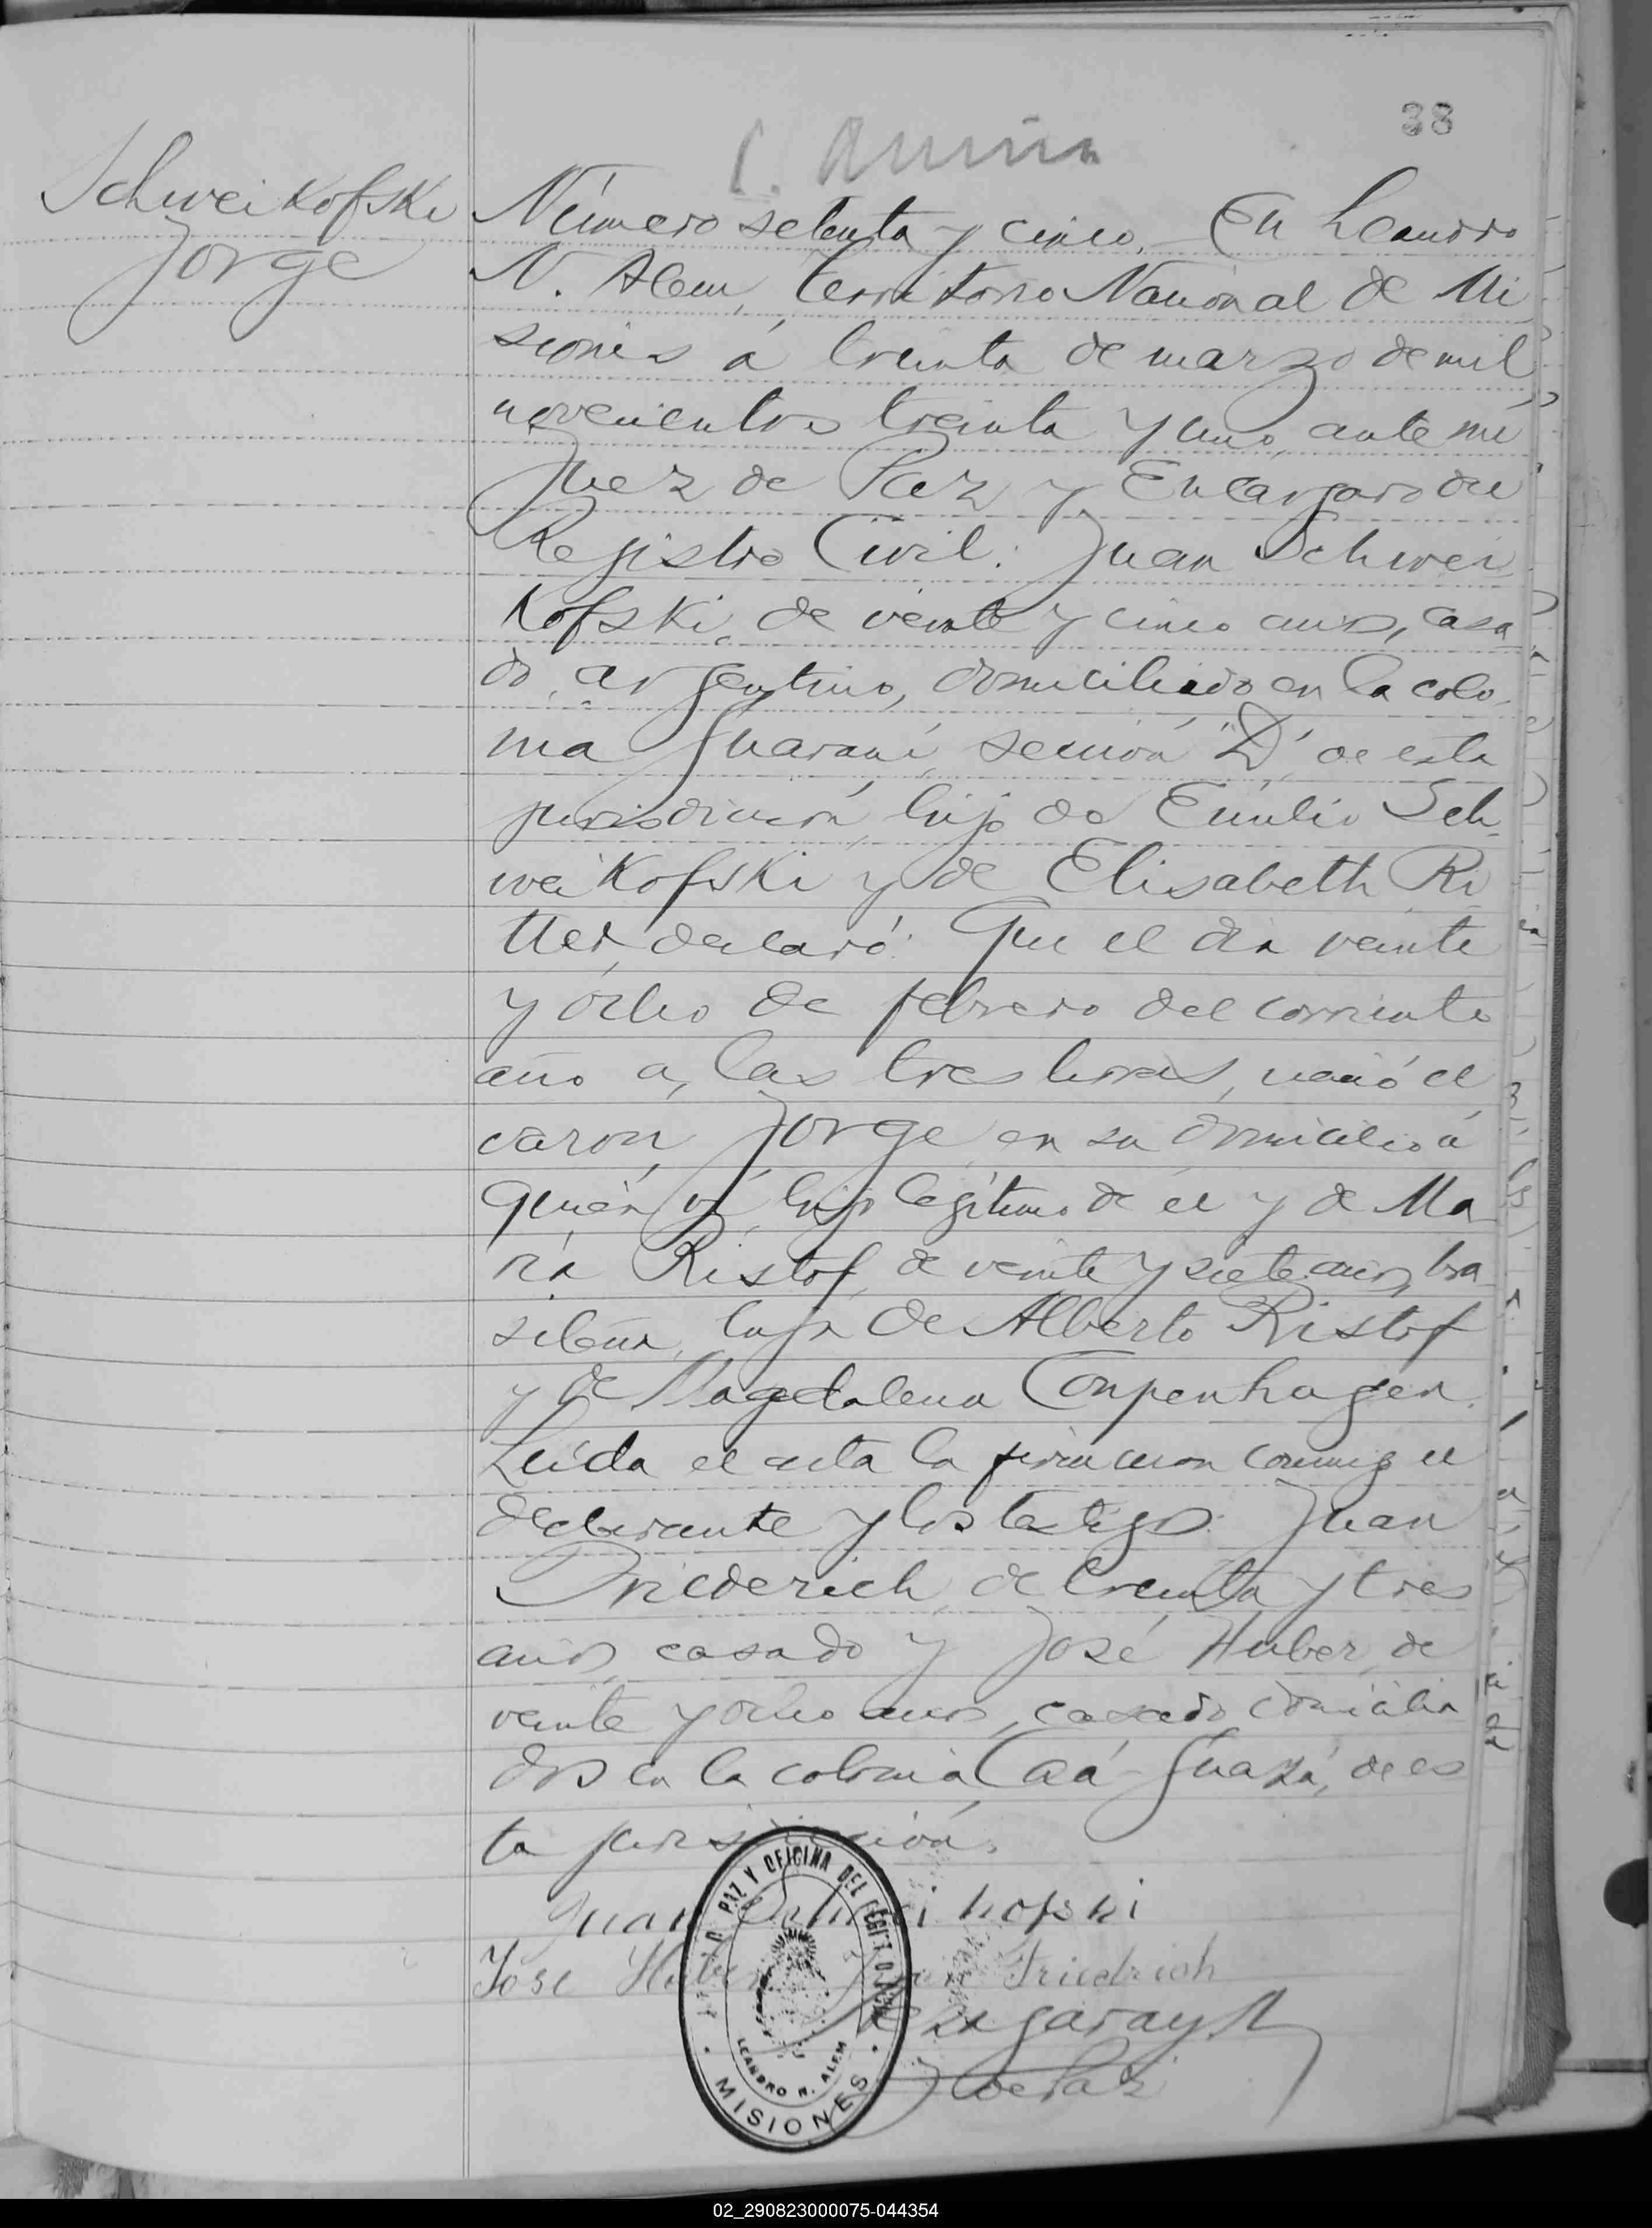 38
Schweikofski
Jorge
Número setenta y cinco. En Leandro
N. Alem, territorio Nacional de Mi
siones á treinta de marzo de mil
novecientos treinta y uno, ante mí
Juez de Paz y Encargado del
Registro Civil: Juan Schwei
Kofski, de veinte y cinco años, casa
do, argentino, domiciliado en la colo
nia Guaraní, sección "D", de esta
jurisdicción, hijo de Emilio Sch
weikofski y de Elisabeth Ri
tter, declaró: Que el día veinte
y ócho de febrero del corriente
año a, las tres horas, nació el
varon, Jorge, en su domicilio á
quién ví, hijo legítimo de él y de Ma
ría Ristof, de veinte y siete años, bra
sileña, hija de Alberto Ristof
y de Magdalena Conpenhagen.
Leída el acta la firmaron conmigo el
declarante y los testigos: Juan
Friederich, de treinta y tres
años, casado y José Huber, de
veinte y ocho años, casado domicilia
dos en la colonia Caá-Guazú, de es
ta jurisdicción.
Juan Schweikofski
José Huber Juan Friedrich
J. de Paz
PAZ Y OFICINA DEL REGISTRO CIVIL
LEANDRO N. ALEM
MISIONES
02_290823000075-044354